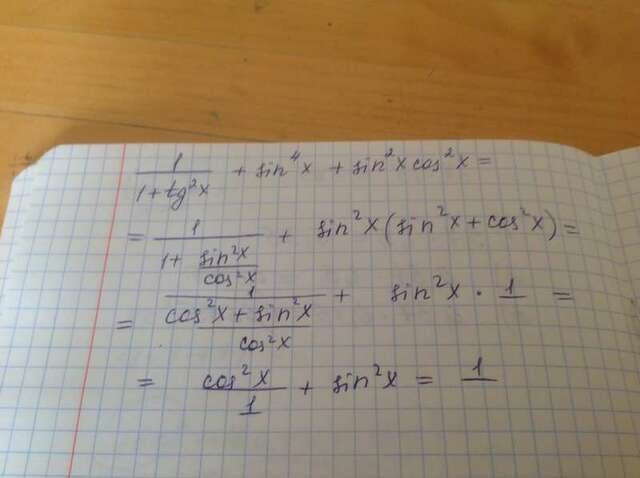 1/(1+tg²x) + sin⁴x + sin²x cos²x =
= 1/(1+ sin²x/cos²x) + sin²x (sin²x + cos²x) =
= 1/((cos²x + sin²x)/cos²x) + sin²x · 1 =
= cos²x/1 + sin²x = 1